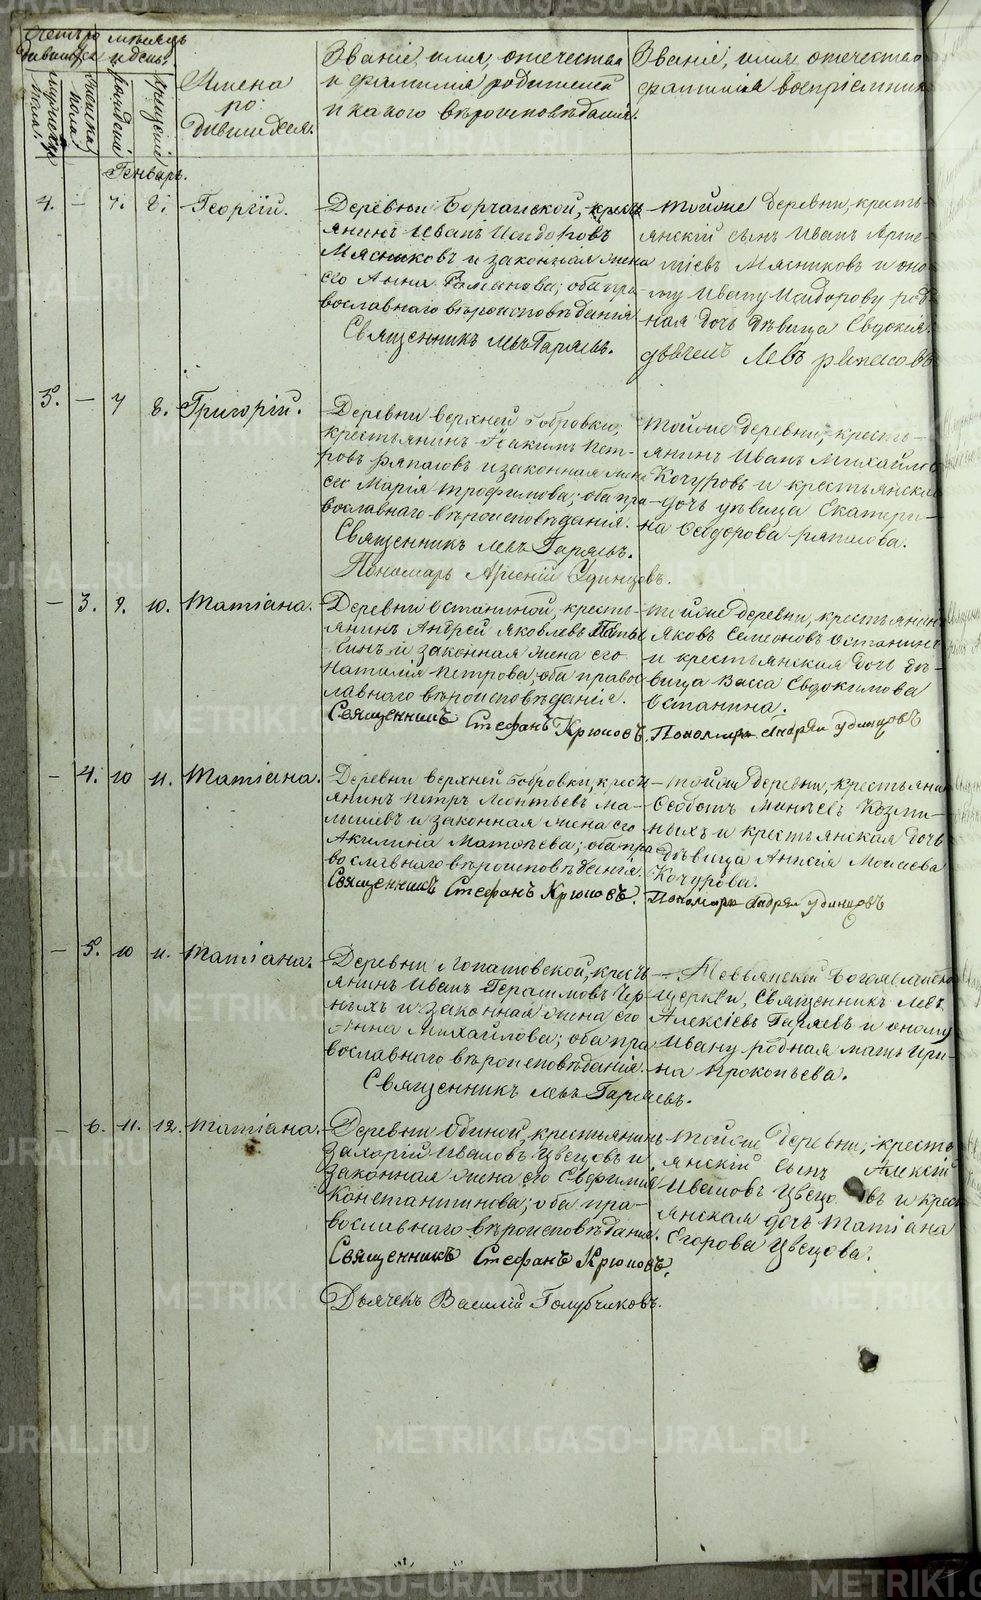 Счетъ ро
дившихся
мѣсяцъ
и день.
мужеска
пола.
женска
пола.
рожденiя
крещенiя
Имена
ро-
дившихся.
Званiе, имя, отечество
и фамилiя родителей
и какого вѣроисповѣданiя.
Званiе, имя, отечество
фамилiя воспрiемник
Генварь.
4. — 7. 8. Георгiй.
Деревни Борчанской, кресть
янинъ Иванъ Исидоровъ
Мясниковъ и законная жена
его Анна Романова; оба пра
вославнаго вѣроисповѣданiя
Священникъ Левъ Гаряевъ.
Тойже деревни, кресть-
янскiй сынъ Иванъ Арте-
мiевъ Мясниковъ и оно-
му Ивану Исидорову род-
ная дочь дѣвица Евдокiя.
дьячекъ Левъ
5. — 7 8. Григорiй.
Деревни верхней Бобровки,
крестьянинъ Iоакимъ Пет-
ровъ Ряпасовъ и законная жена
его Марiя Трофимова; оба пра-
вославнаго вѣроисповѣданiя.
Священникъ Левъ Гаряевъ.
Пономарь Арсенiй Удинцовъ.
Тойже деревни, кресть-
янинъ Иванъ Михайловъ
Кочуровъ и крестьянская
дочь дѣвица Екатери-
на Ѳедорова Ряпасова.
— 3. 9. 10. Татiана.
Деревни Останиной, кресть-
янинъ Андрей Яковлевъ
и законная жена его
Наталiя Петрова; оба правос-
лавнаго вѣроисповѣданiя.
Священникъ Стефанъ Крюковъ.
Тойже деревни, крестьянинъ
Яковъ Семеоновъ Останинъ
и крестьянская дочь дѣ-
вица Васса Евдокимова
Останина.
Пономарь Андрей Удинцовъ
— 4. 10 11. Татiана.
Деревни верхней Бобровки, крест-
янинъ Петръ Леонтьевъ Ма-
лышевъ и законная жена его
Акилина Матѳеева; оба пра
вославнаго вѣроисповѣданiя.
Священникъ Стефанъ Крюковъ.
Тойже деревни, крестьянинъ
Ѳеоѳаптъ Минѣевъ Козги-
ныхъ и крестьянская дочь
дѣвица Анисiя Моисеева
Кочурова.
Пономарь Андрей Удинцовъ
— 5. 10 11. Татiана.
Деревни Лопатовской, кресть
янинъ Иванъ Герасимовъ Чер-
ныхъ и законная жена его
Анна Михайлова; оба пра
вославнаго вѣроисповѣданiя.
Священникъ Левъ Гаряевъ.
Невьянской Богоявленской
церкви, Священникъ Левъ
Алексiевъ Гаряевъ и оному
Ивану родная мать Ири-
на Прокопьева.
— 6. 11. 12. Татiана.
Деревни Ѳдиной, крестьянинъ
Захарiй Ивановъ Цвецовъ и
законная жена его Евфимiя
Константинова; оба пра-
вославнаго вѣроисповѣданiя.
Священникъ Стефанъ Крюковъ.
Дьячекъ Василiй Голубчиковъ.
Тойже деревни, кресть-
янскiй сынъ Алексiй
Ивановъ Цвецовъ и крест
янская дочь Татiана
Егорова Цвецова.
METRIKI.GASO-URAL.RU